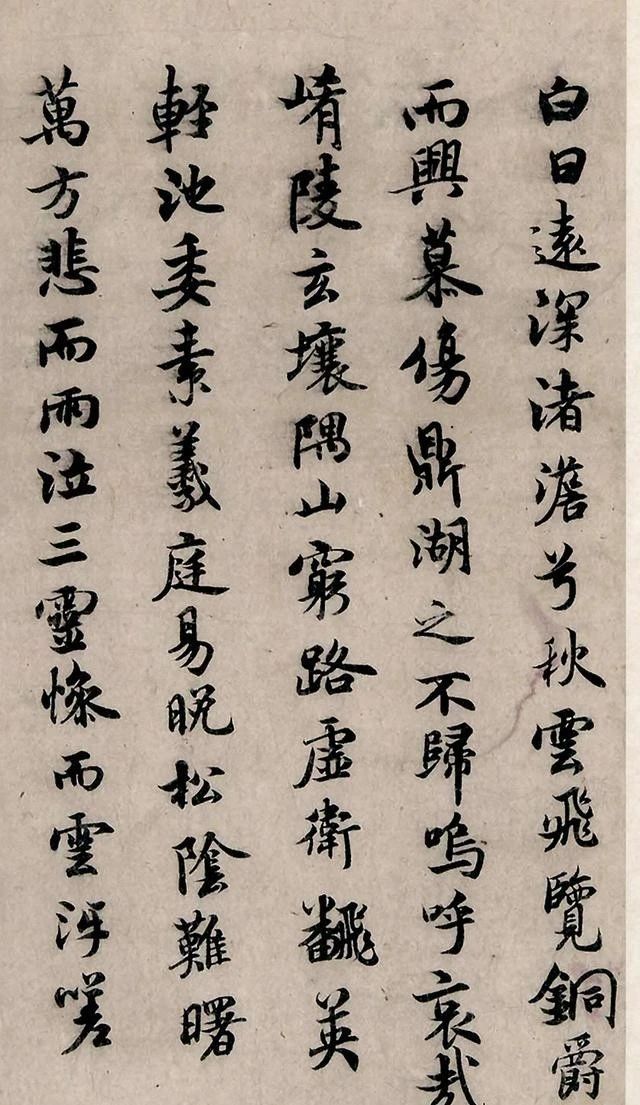 白日遠深渚澹兮秋雲飛覽銅爵
而興慕傷鼎湖之不歸嗚呼哀哉
崤陵玄壤隅山窮路虛衛飜英
輕池委素羲庭易晚松陰難曙
萬方悲而雨泣三靈慘而雲沍嗟